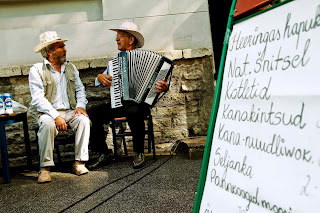 Heeringas hapuk
Nat. šnitsel
Kotletid
Kanakintsud
Kana-nuudliwok
Seljanka